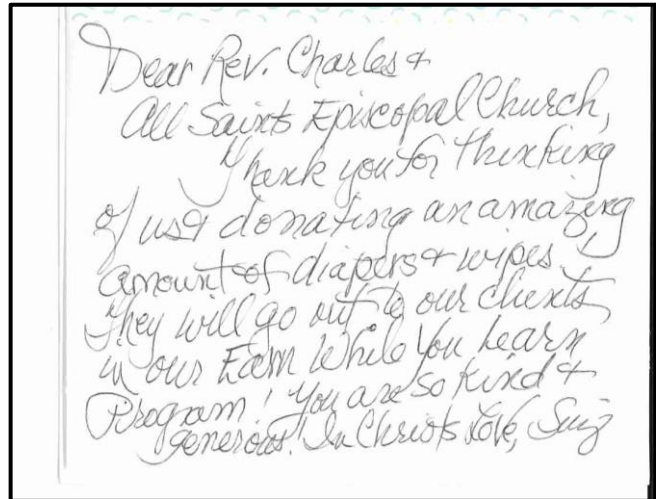 Dear Rev. Charles &
All Saints Episcopal Church,
Thank you for thinking
of us & donating an amazing
amount of diapers & wipes!
They will go out to our clients
in our Earn While You Learn
Program! You are so kind &
generous! In Christ's Love,